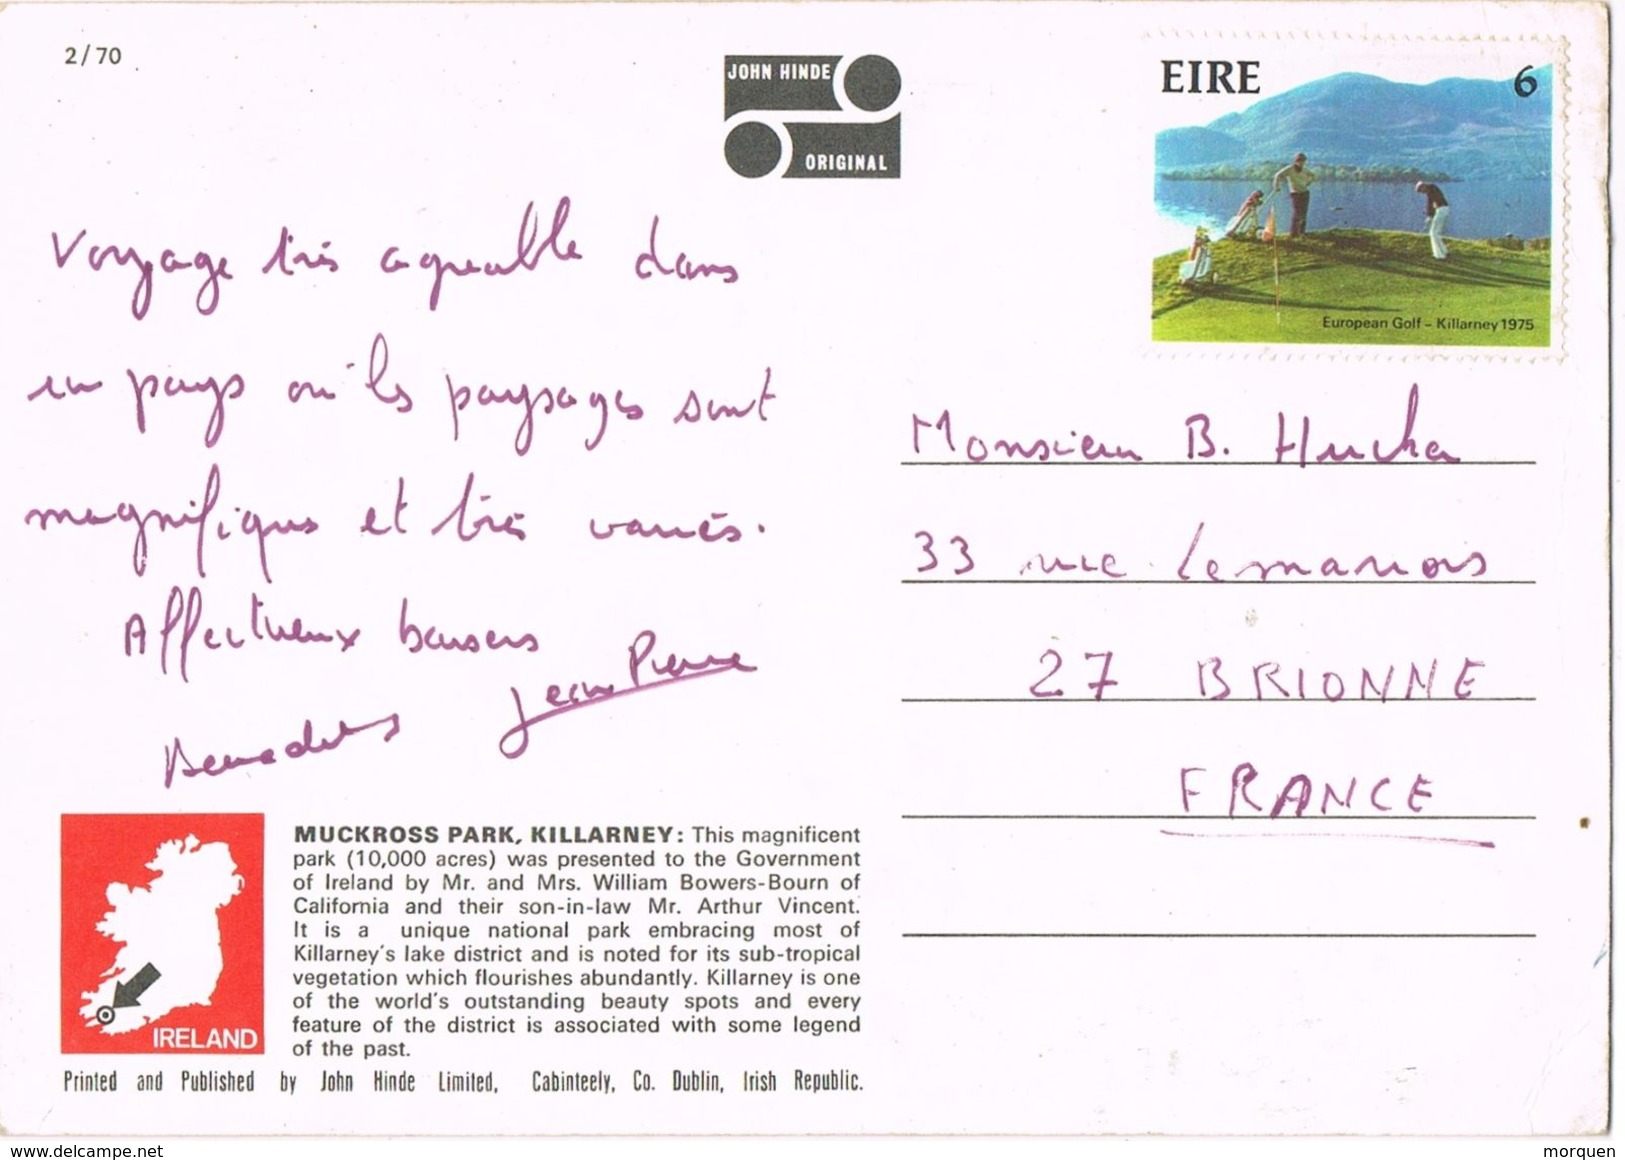 2/70
JOHN HINDE
ORIGINAL
EIRE 6
European Golf - Killarney 1975
Voyage très agréable dans
un pays où les paysages sont
magnifiques et très variés.
Affectueux baisers
Jean Pierre
Monsieur B. Hucher
33 rue Lemarois
27 BRIONNE
FRANCE
IRELAND
MUCKROSS PARK, KILLARNEY: This magnificent
park (10,000 acres) was presented to the Government
of Ireland by Mr. and Mrs. William Bowers-Bourn of
California and their son-in-law Mr. Arthur Vincent.
It is a unique national park embracing most of
Killarney's lake district and is noted for its sub-tropical
vegetation which flourishes abundantly. Killarney is one
of the world's outstanding beauty spots and every
feature of the district is associated with some legend
of the past.
Printed and Published by John Hinde Limited, Cabinteely, Co. Dublin, Irish Republic.
delcampe.net
morquen